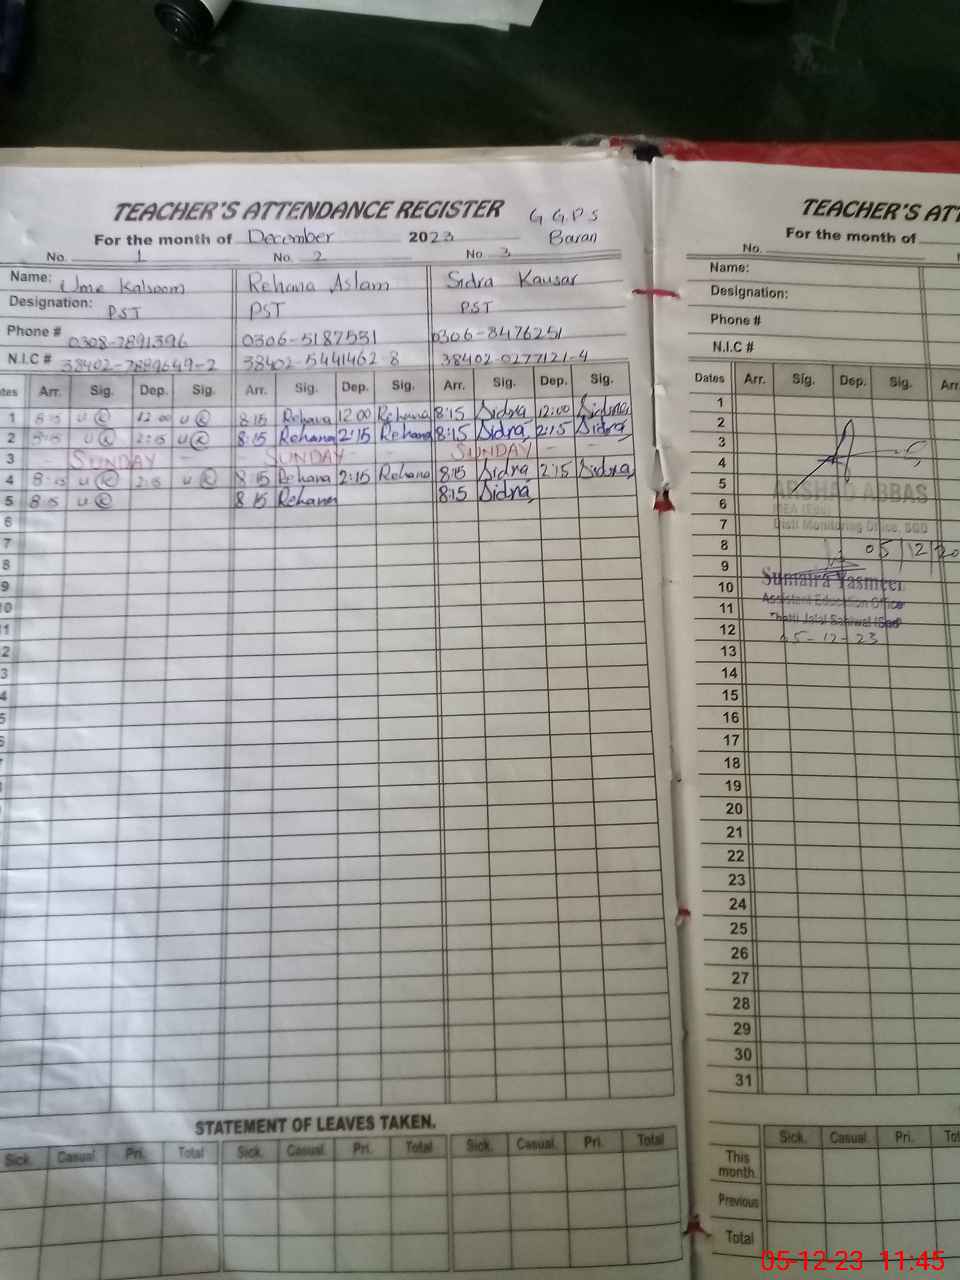 TEACHER'S ATTENDANCE REGISTER G G.P.S
For the month of December 2023 Baran
No. 1 No. 2 No. 3
Name: Ume Kalsoom Rehana Aslam Sidra Kausar
Designation: PST PST PST
Phone # 0308-7891396 0306-5187531 0306-8476251
N.I.C # 38402-7889649-2 38402-5441462-8 38402-0277121-4
Arr. Sig. Dep. Sig. Arr. Sig. Dep. Sig. Arr. Sig. Dep. Sig.
1 8:15 12:00 8:15 Rehana 12:00 Rehana 8:15 Sidra 12:00 Sidra
2 8:15 2:15 8:15 Rehana 2:15 Rehana 8:15 Sidra 2:15 Sidra
3 SUNDAY SUNDAY SUNDAY
4 8:15 2:15 8:15 Rehana 2:15 Rehana 8:15 Sidra 2:15 Sidra
5 8:15 8:15 Rehana 8:15 Sidra
6
7
8
9
STATEMENT OF LEAVES TAKEN.
Sick. Casual Pri. Total Sick. Casual Pri. Total Sick. Casual Pri. Total
TEACHER'S
For the month of
No.
Name:
Designation:
Phone #
N.I.C #
Dates Arr. Sig. Dep. Sig.
1
2
3
4
5
ARSHAD ABBAS
6
MEA (Edu)
7
Distt Monitoring Office, SGD
8 05/12/20
9
Sumaira Yasmeen
10
Assistant Education Office
11
Thatti Jalal
12
05-12-23
13
14
15
16
17
18
19
20
21
22
23
24
25
26
27
28
29
30
31
Sick. Casual Pri.
This month
Previous
Total
05-12-23 11:45